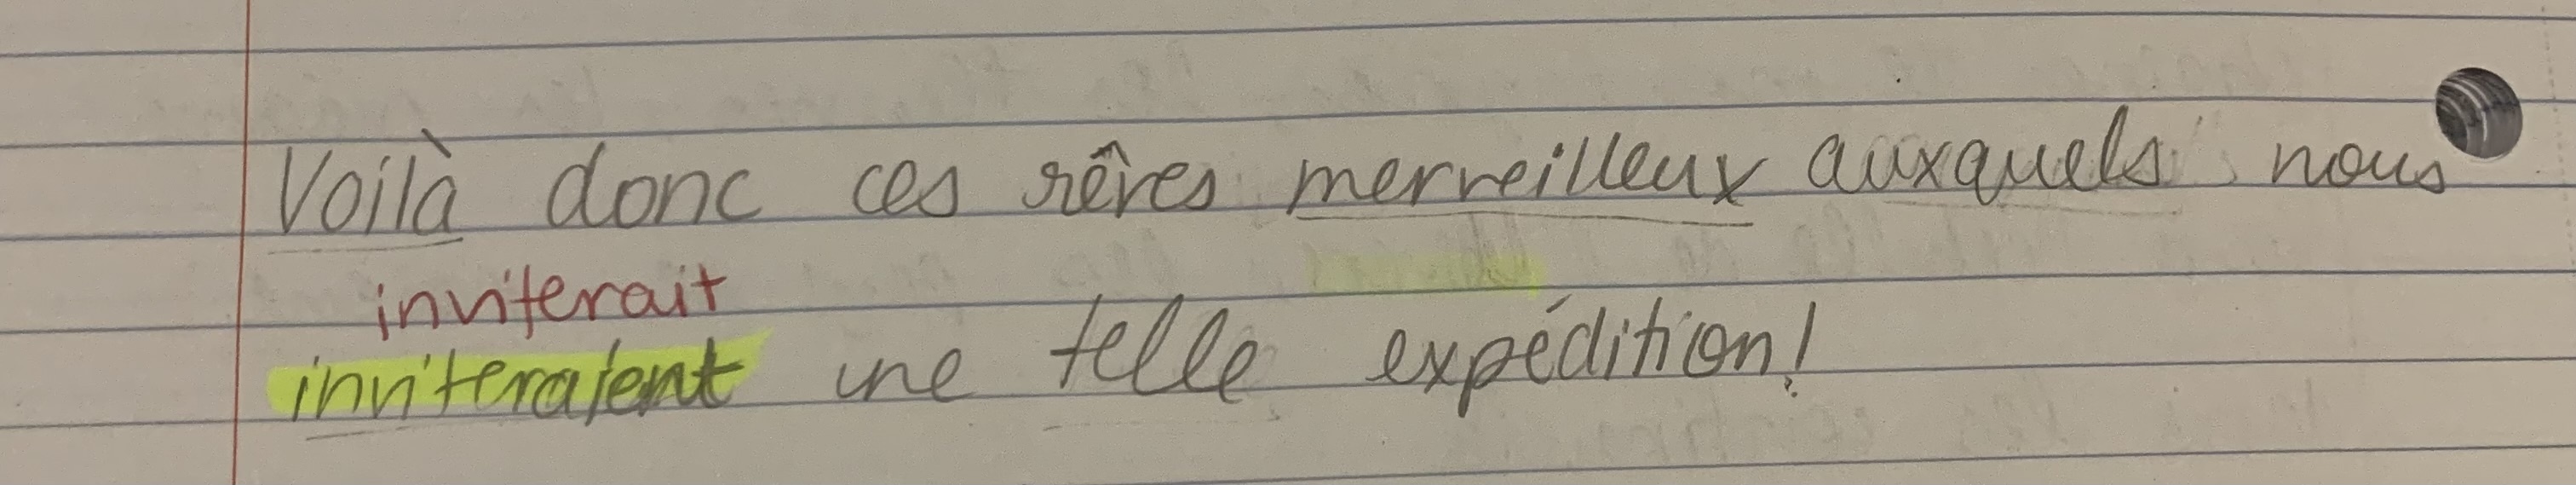 Voilà donc ces rêves merveilleux auxquels nous
inviterait
inviteraient une telle expédition!